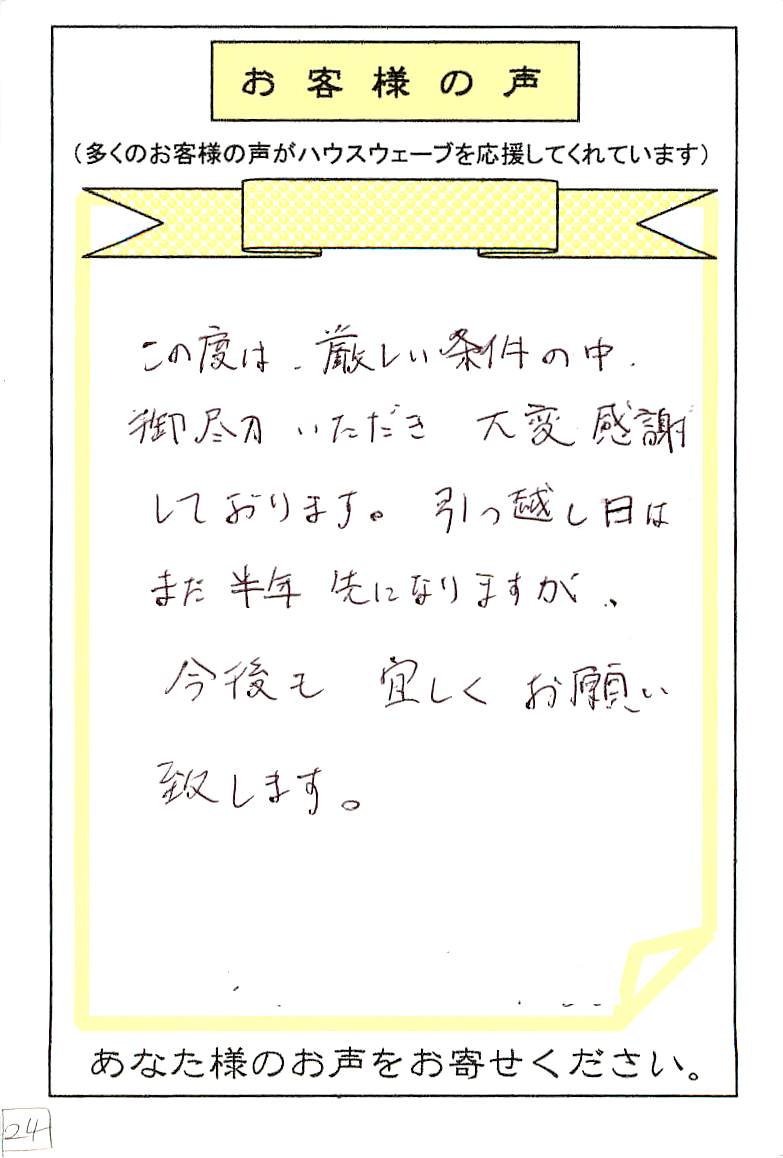 お客様の声
（多くのお客様の声がハウスウェーブを応援してくれています）
この度は、厳しい条件の中、
御尽力いただき 大変感謝
しております。引っ越し日は
まだ半年先になりますが、
今後も 宜しくお願い
致します。
あなた様のお声をお寄せください。
24